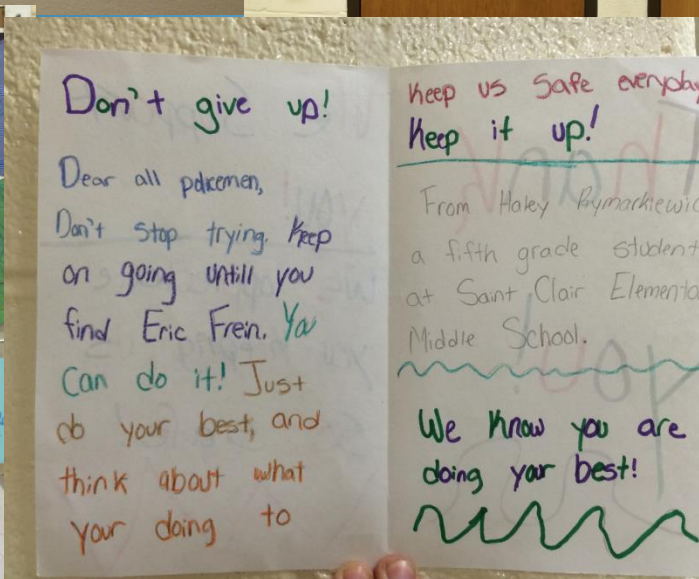 Don't give up!
Dear all policemen,
Don't stop trying. Keep
on going untill you
find Eric Frein. You
Can do it! Just
do your best, and
think about what
your doing to
Keep us Safe everyday
Keep it up!
From Haley
a fifth grade student
at Saint Clair
Middle School.
We Know you are
doing your best!